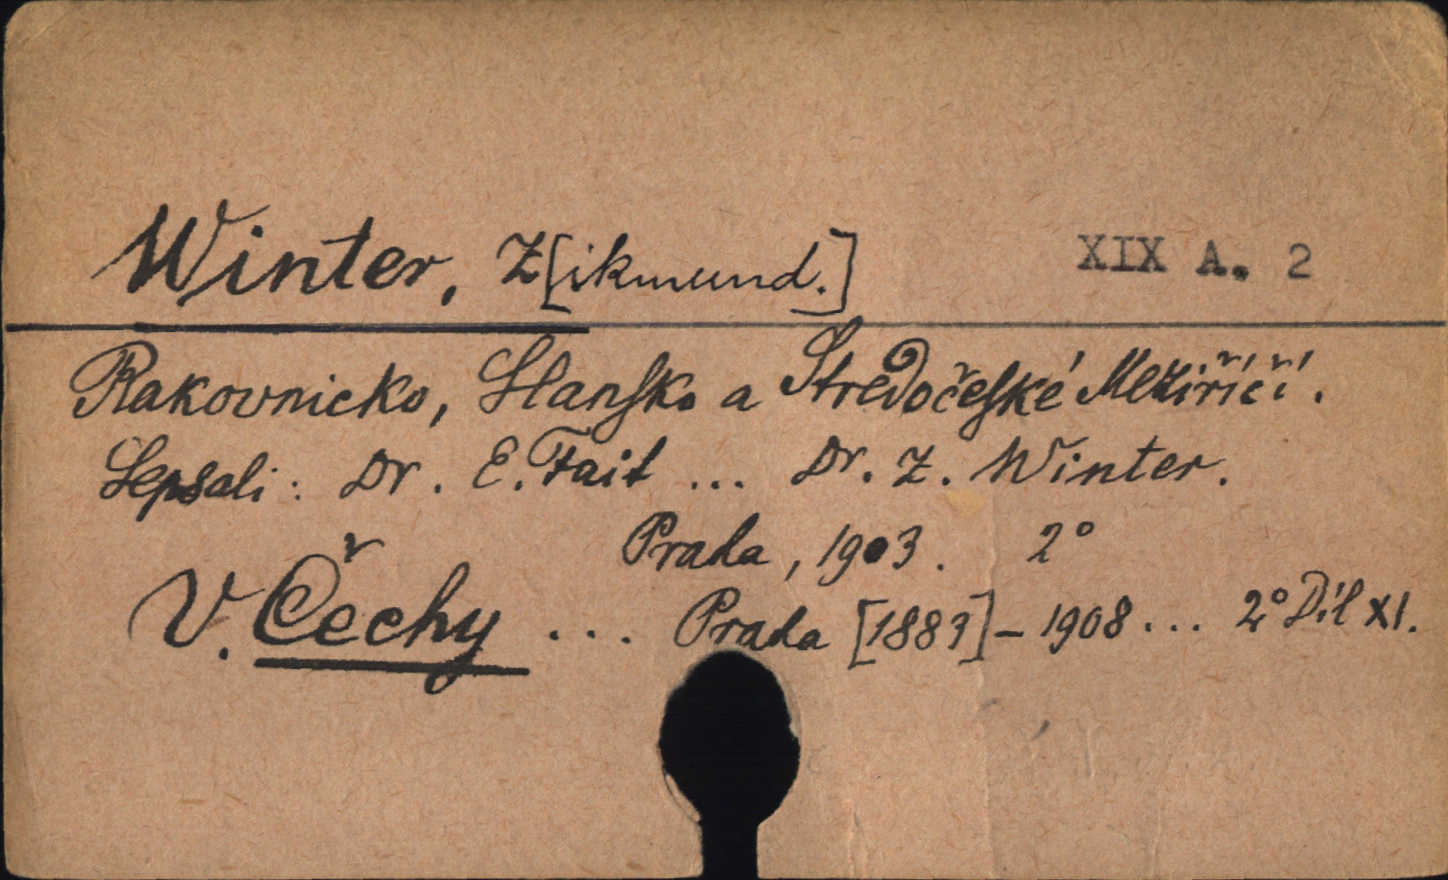 Winter, Z[ikmund.] XIX A. 2
Rakovnicko, Slansko a Středočeské Meziříčí.
Sepsali: Dr. E. Fait ... Dr. Z. Winter.
Praha, 1903. 2°
V. Čechy ... Praha [1883]-1908... 2° Díl XI.